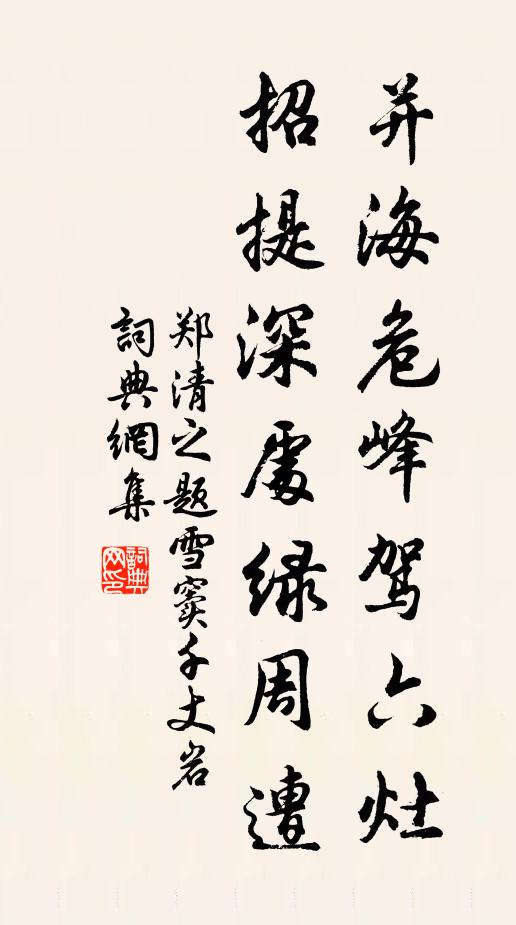 并海危峰驾六灶
招提深處绿周遭
郑清之题雪窦千丈岩
詞典網集
詞典网印